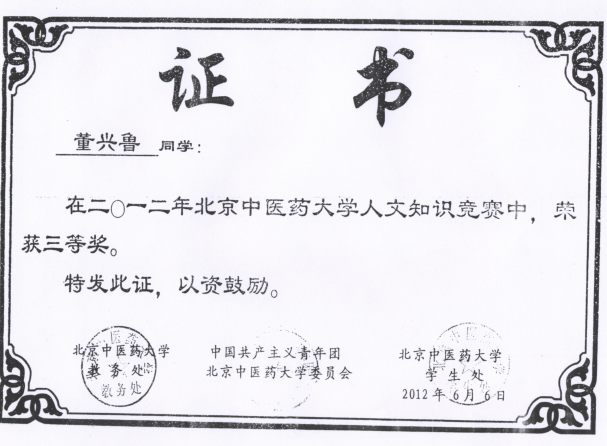 证 书
董兴鲁 同学：
在二〇一二年北京中医药大学人文知识竞赛中，荣
获三等奖。
特发此证，以资鼓励。
北京中医药大学 中国共产主义青年团 北京中医药大学
教务处 北京中医药大学委员会 学生处
教务处 2012年6月6日